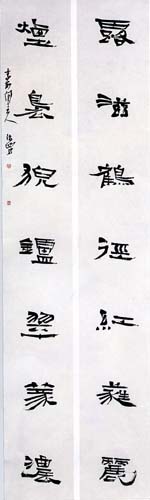 露滋鶴徑紅蕤麗
煙裊猊鑪翠篆濃